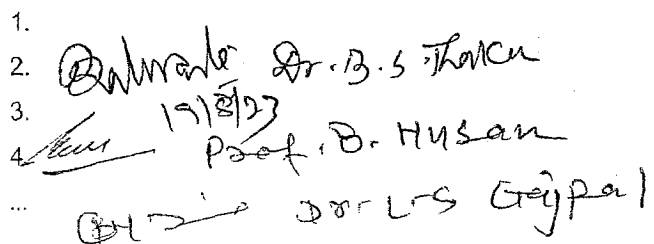 1.
2. Dr. B. S Thakur
3. 19/8/23
4. Prof. B. Husan
... Dr. L-S Gajpal